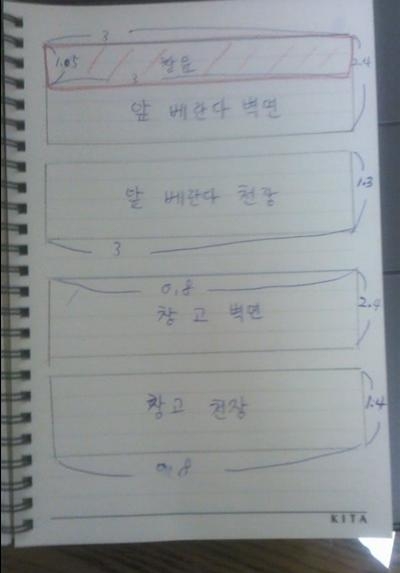 3
1.05 창문 2.4
3
앞 베란다 벽면
앞 베란다 천장 1.3
3
0.8
창고 벽면 2.4
창고 천장 1.4
0.8
KITA